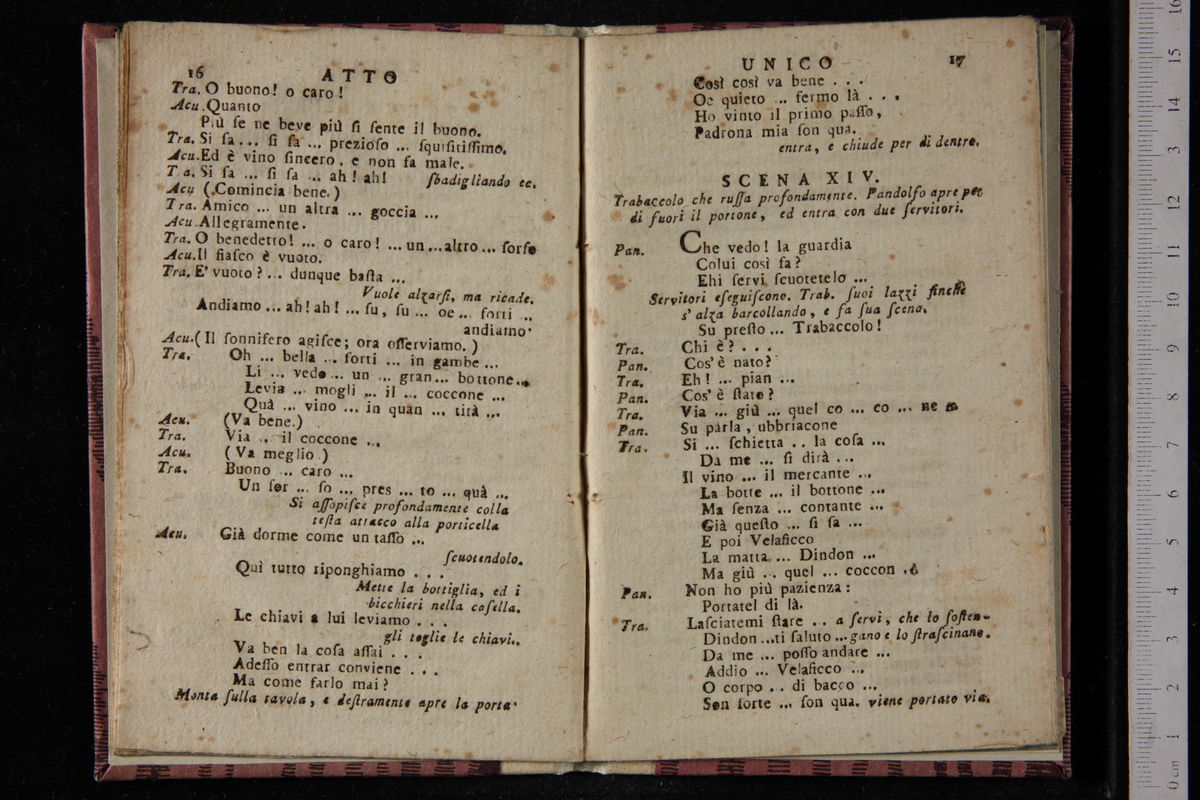 16 ATTO
Tra. O buono! o caro!
Acu. Quanto
Più ſe ne beve più ſi ſente il buono.
Tra. Si ſa... ſi ſa ... prezioſo ... ſquiſitiſſimo.
Acu. Ed è vino ſincero, e non fa male.
T a. Si ſa ... ſi ſa ... ah! ah! ſbadigliando ec.
Acu (Comincia bene.)
Tra. Amico ... un altra ... goccia ...
Acu Allegramente.
Tra. O benedetto! ... o caro! ... un ... altro ... forſe
Acu. Il fiaſco è vuoto.
Tra. E' vuoto? ... dunque baſta ...
Vuole alzarſi, ma ricade.
Andiamo ... ah! ah! ... ſu, ſu ... oe ... forti ..
andiamo.
Acu. (Il ſonnifero agiſce; ora oſſerviamo.)
Tra. Oh ... bella ... forti ... in gambe ...
Li ... vedo ... un ... gran ... bottone...
Levia ... mogli ... il ... coccone ...
Quà ... vino ... in quan ... tità ...
Acu. (Va bene.)
Tra. Via .. il coccone ...
Acu. (Va meglio.)
Tra. Buono ... caro ...
Un ſor ... ſo ... pres ... to ... quà ...
Si aſſopiſce profondamente colla
teſta attacco alla porticella
Acu. Già dorme come un taſſo ...
ſcuotendolo.
Quì tutto riponghiamo . . .
Mette la bottiglia, ed i
bicchieri nella caſella.
Le chiavi a lui leviamo . . .
gli toglie le chiavi..
Va ben la coſa aſſai . . .
Adeſſo entrar conviene . . .
Ma come farlo mai?
Monta ſulla tavola, e deſtramente apre la porta.
UNICO 17
Così così va bene . . .
Oe quieto ... fermo là . . .
Ho vinto il primo paſſo,
Padrona mia ſon qua.
entra, e chiude per di dentro.
SCENA XIV.
Trabaccolo che ruſſa profondamente. Pandolfo apre per
di fuori il portone, ed entra con due ſervitori.
Pan. Che vedo! la guardia
Colui così fa?
Ehi ſervi ſcuotetelo ...
Servitori eſeguiſcono. Trab. ſuoi lazzi finchè
s' alza barcollando, e fa ſua ſcena.
Su preſto ... Trabaccolo!
Tra. Chi è? . . .
Pan. Cos' è nato?
Tra. Eh! ... pian ...
Pan. Cos' è ſtato?
Tra. Via ... giù ... quel co ... co ... ne
Pan. Su parla, ubbriacone
Tra. Si ... ſchietta .. la coſa ...
Da me ... ſi dirà ...
Il vino ... il mercante ...
La botte ... il bottone ...
Ma ſenza ... contante ...
Già queſto ... ſi ſa ...
E poi Velaficco
La matta ... Dindon ...
Ma giù .. quel ... coccon ..
Pan. Non ho più pazienza:
Portatel di là.
Tra. Laſciatemi ſtare .. a ſervi, che lo ſoſten-
Dindon ...ti ſaluto ... gano e lo ſtraſcinano.
Da me ... poſſo andare ...
Addio ... Velaficco ...
O corpo .. di bacco ...
Son forte ... ſon qua. viene portato via.
16
15
14
13
12
11
10
9
8
7
6
5
4
3
2
1
0 cm